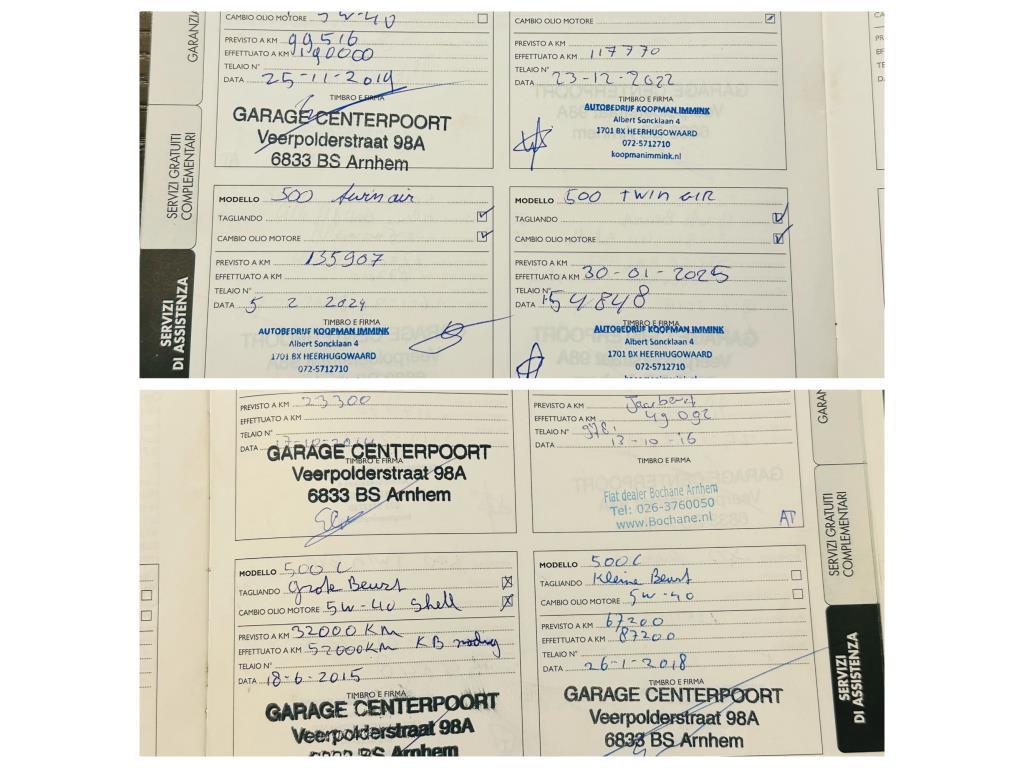 GARANZIA
SERVIZI GRATUITI
COMPLEMENTARI
SERVIZI
DI ASSISTENZA
CAMBIO OLIO MOTORE 5W-40
PREVISTO A KM 99516
EFFETTUATO A KM 190000
TELAIO N°
DATA 25-11-2019
TIMBRO E FIRMA
GARAGE CENTERPOORT
Veerpolderstraat 98A
6833 BS Arnhem
CAMBIO OLIO MOTORE
PREVISTO A KM
EFFETTUATO A KM 117770
TELAIO N°
DATA 23-12-2022
TIMBRO E FIRMA
AUTOBEDRIJF KOOPMAN IMMINK
Albert Soncklaan 4
1701 BX HEERHUGOWAARD
072-5712710
koopmanimmink.nl
MODELLO 500 twin air
TAGLIANDO
CAMBIO OLIO MOTORE
PREVISTO A KM 135907
EFFETTUATO A KM
TELAIO N°
DATA 5 2 2024
TIMBRO E FIRMA
AUTOBEDRIJF KOOPMAN IMMINK
Albert Soncklaan 4
1701 BX HEERHUGOWAARD
072-5712710
MODELLO 500 TWIN AIR
TAGLIANDO
CAMBIO OLIO MOTORE
PREVISTO A KM
EFFETTUATO A KM 30-01-2025
TELAIO N°
DATA 154848
TIMBRO E FIRMA
AUTOBEDRIJF KOOPMAN IMMINK
Albert Soncklaan 4
1701 BX HEERHUGOWAARD
072-5712710
koopmanimmink.nl
PREVISTO A KM 23300
EFFETTUATO A KM
TELAIO N°
DATA 17-10-2014
TIMBRO E FIRMA
GARAGE CENTERPOORT
Veerpolderstraat 98A
6833 BS Arnhem
PREVISTO A KM Jaarbeurt
EFFETTUATO A KM 49092
TELAIO N°
DATA 13-10-16
TIMBRO E FIRMA
Fiat dealer Bochane Arnhem
Tel: 026-3760050
www.Bochane.nl
AT
MODELLO 500 C
TAGLIANDO Grote Beurt
CAMBIO OLIO MOTORE 5W-40 Shell
PREVISTO A KM 32000 KM
EFFETTUATO A KM 52000KM KB nodig
TELAIO N°
DATA 18-6-2015
TIMBRO E FIRMA
GARAGE CENTERPOORT
Veerpolderstraat 98A
6833 BS Arnhem
MODELLO 500C
TAGLIANDO Kleine Beurt
CAMBIO OLIO MOTORE 5W-40
PREVISTO A KM 67200
EFFETTUATO A KM 87200
TELAIO N°
DATA 26-1-2018
TIMBRO E FIRMA
GARAGE CENTERPOORT
Veerpolderstraat 98A
6833 BS Arnhem
SERVIZI GRATUITI
COMPLEMENTARI
SERVIZI
DI ASSISTENZA